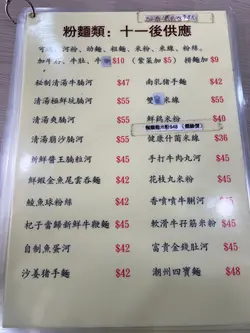 粉麵類：十一後供應
可 河粉、幼麵、粗麵、米粉、米線、粉絲。
加牛 、牛肚、牛 $10 (紫菜加$5) 拼麵加$9
秘制清湯牛腩河 $47
清湯極鮮坑腩河 $55
清湯爽腩河 $55
清湯崩沙腩河 $55
新鮮蟹王腩粒河 $45
鮮蝦金魚尾雲吞麵 $42
鯪魚球粉絲 $42
杞子當歸新鮮牛𦟌麵 $45
自制魚蛋河 $42
沙薑豬手麵 $42
南乳豬手麵 $42
雙 米線 $55
鮮鷄米粉 $40
$48
健康什菌米線 $40
手打牛肉丸河 $45
花枝丸米粉 $42
香噴噴牛脷河 $45
軟滑牛孖筋米粉 $45
富貴金錢肚河 $45
潮州四寶麵 $48